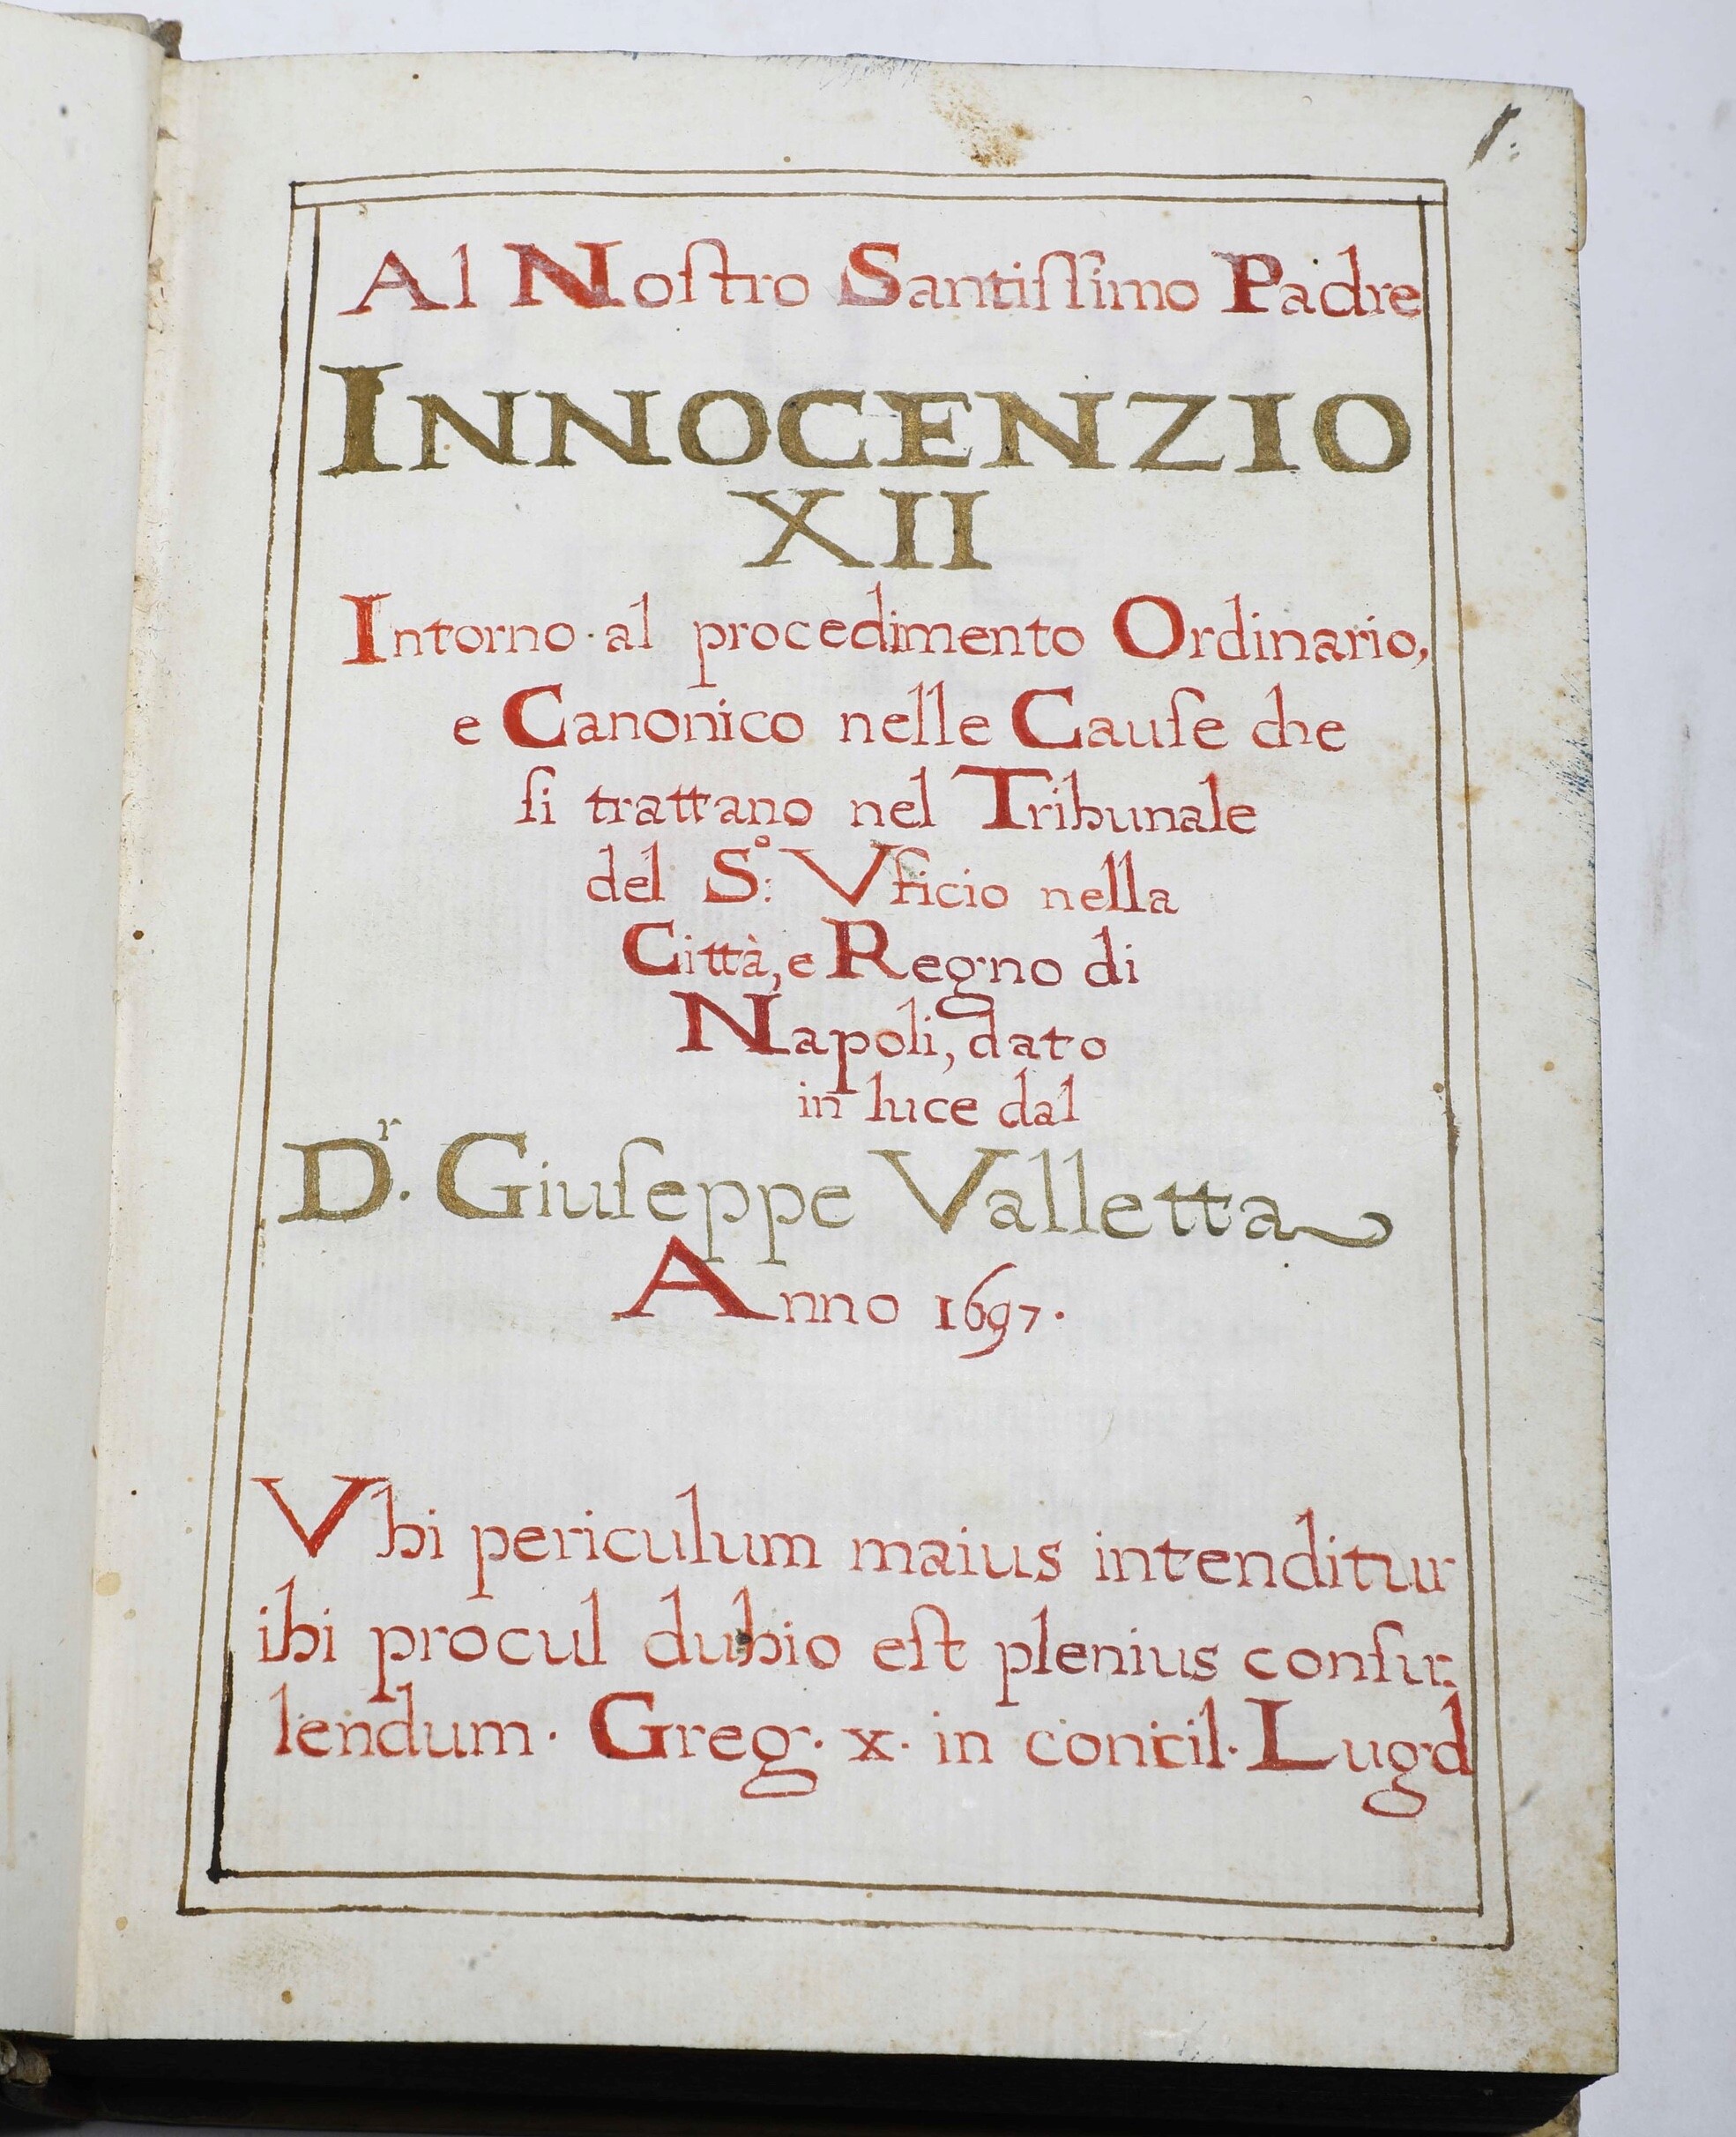 1.
Al Noſtro Santiſſimo Padre
INNOCENZIO
XII
Intorno al procedimento Ordinario,
e Canonico nelle Cauſe che
ſi trattano nel Tribunale
del S:º Vficio nella
Città, e Regno di
Napoli, dato
in luce dal
D.r Giuſeppe Valletta
Anno 1697.
Vbi periculum maius intenditur
ibi procul dubio eſt plenius conſu:
lendum. Greg. x. in concil. Lugd